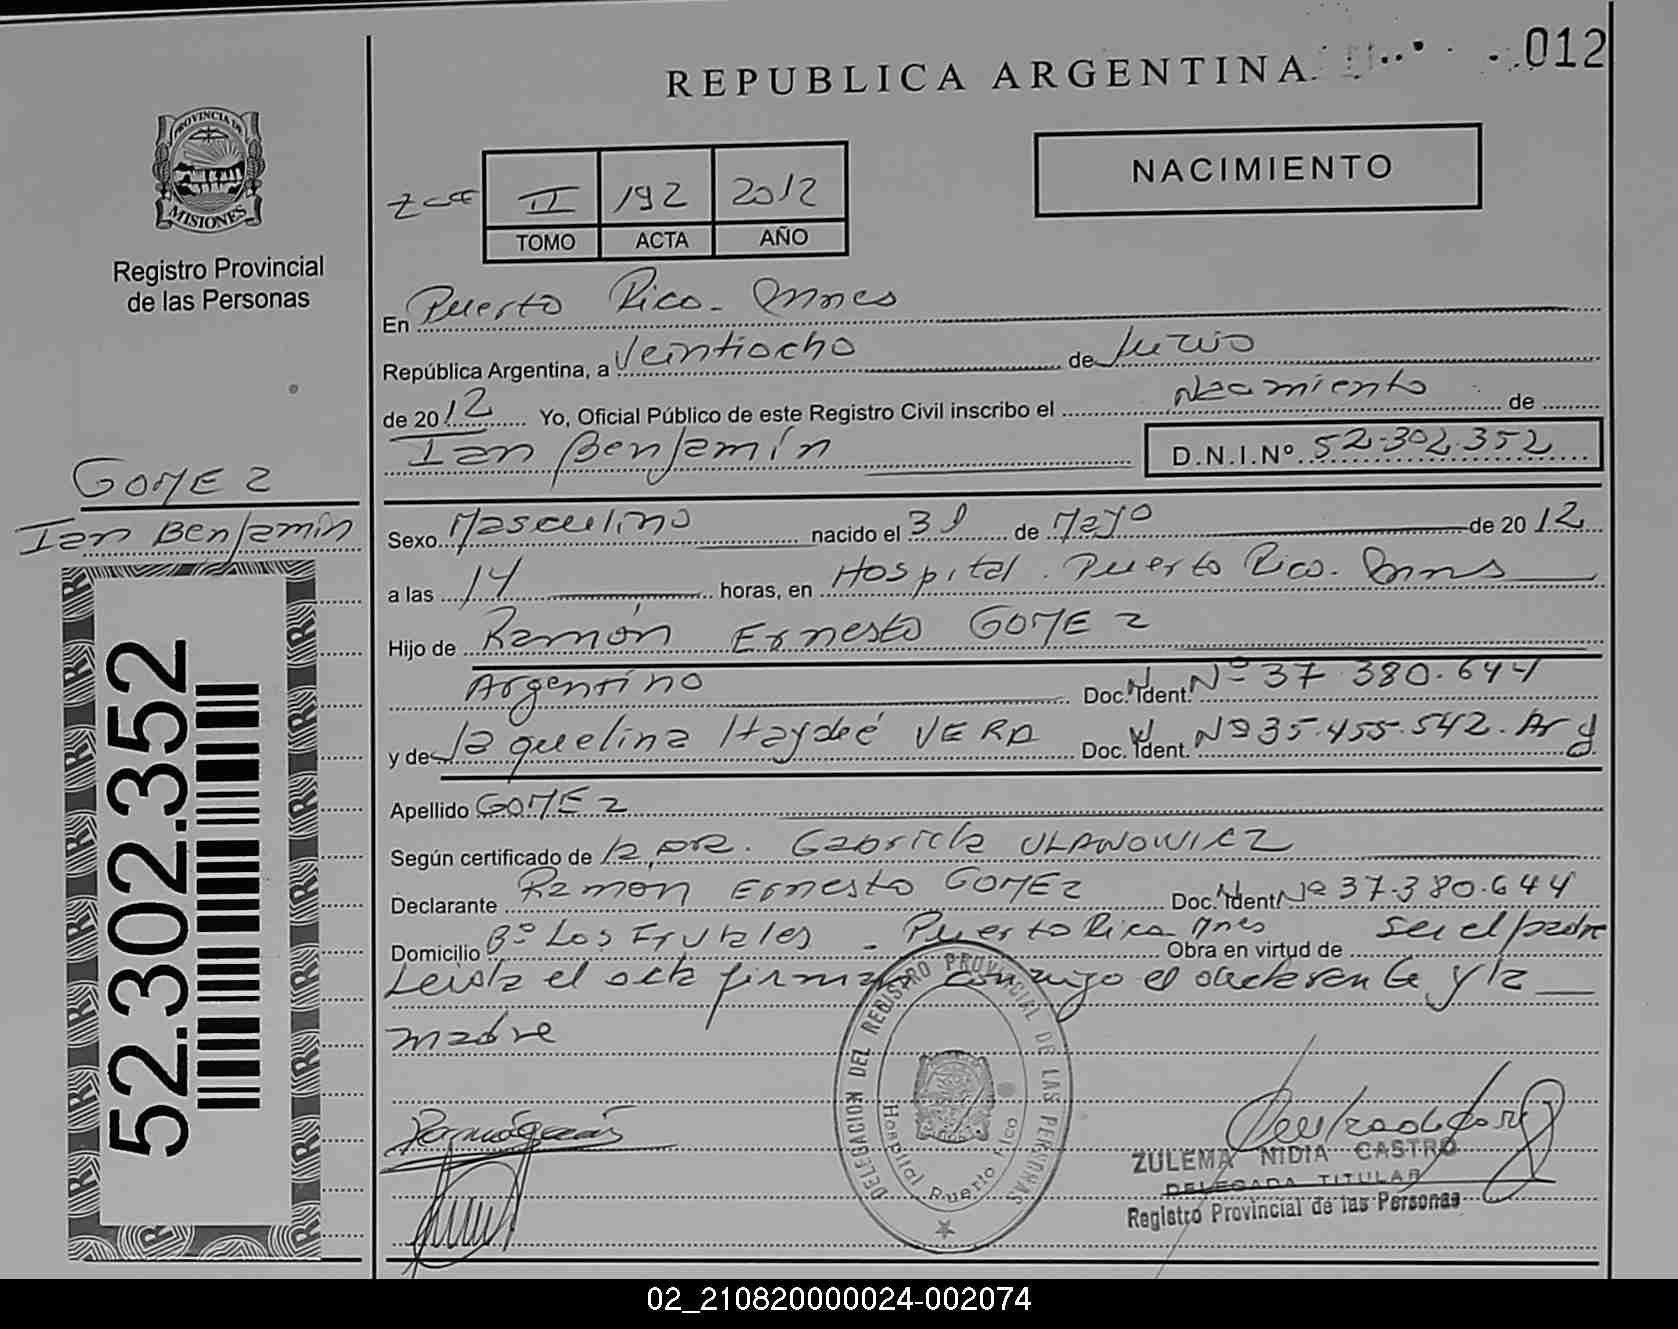 012
REPUBLICA ARGENTINA
PROVINCIA DE
MISIONES
Registro Provincial
de las Personas
NACIMIENTO
II 192 2012
TOMO ACTA AÑO
En Puerto Rico - Mnes
República Argentina, a Veintiocho de Junio
de 2012 Yo, Oficial Público de este Registro Civil inscribo el Nacimiento de
Ian Benjamín D.N.I.Nº 52.302.352
GOMEZ
Ian Benjamín
Sexo Masculino nacido el 31 de Mayo de 2012
a las 14 horas, en Hospital. Puerto Rico. Mnes
Hijo de Ramón Ernesto GOMEZ
Argentino Doc. Ident. Nº 37.380.644
y de Jaquelina Haydeé VERA Doc. Ident. Nº 35.455.542. Arg
Apellido GOMEZ
Según certificado de la Dra. Gabriela ULANOWICZ
Declarante Ramón Ernesto GOMEZ Doc. Ident Nº 37.380.644
Domicilio Bº Los Frutales - Puerto Rico - Mnes Obra en virtud de ser el padre
Leida el acta firma conmigo el declarante y la
madre
52.302.352
DELEGACION DEL REGISTRO PROVINCIAL DE LAS PERSONAS
Hospital Puerto Rico
ZULEMA NIDIA CASTRO
DELEGADA TITULAR
Registro Provincial de las Personas
02_210820000024-002074